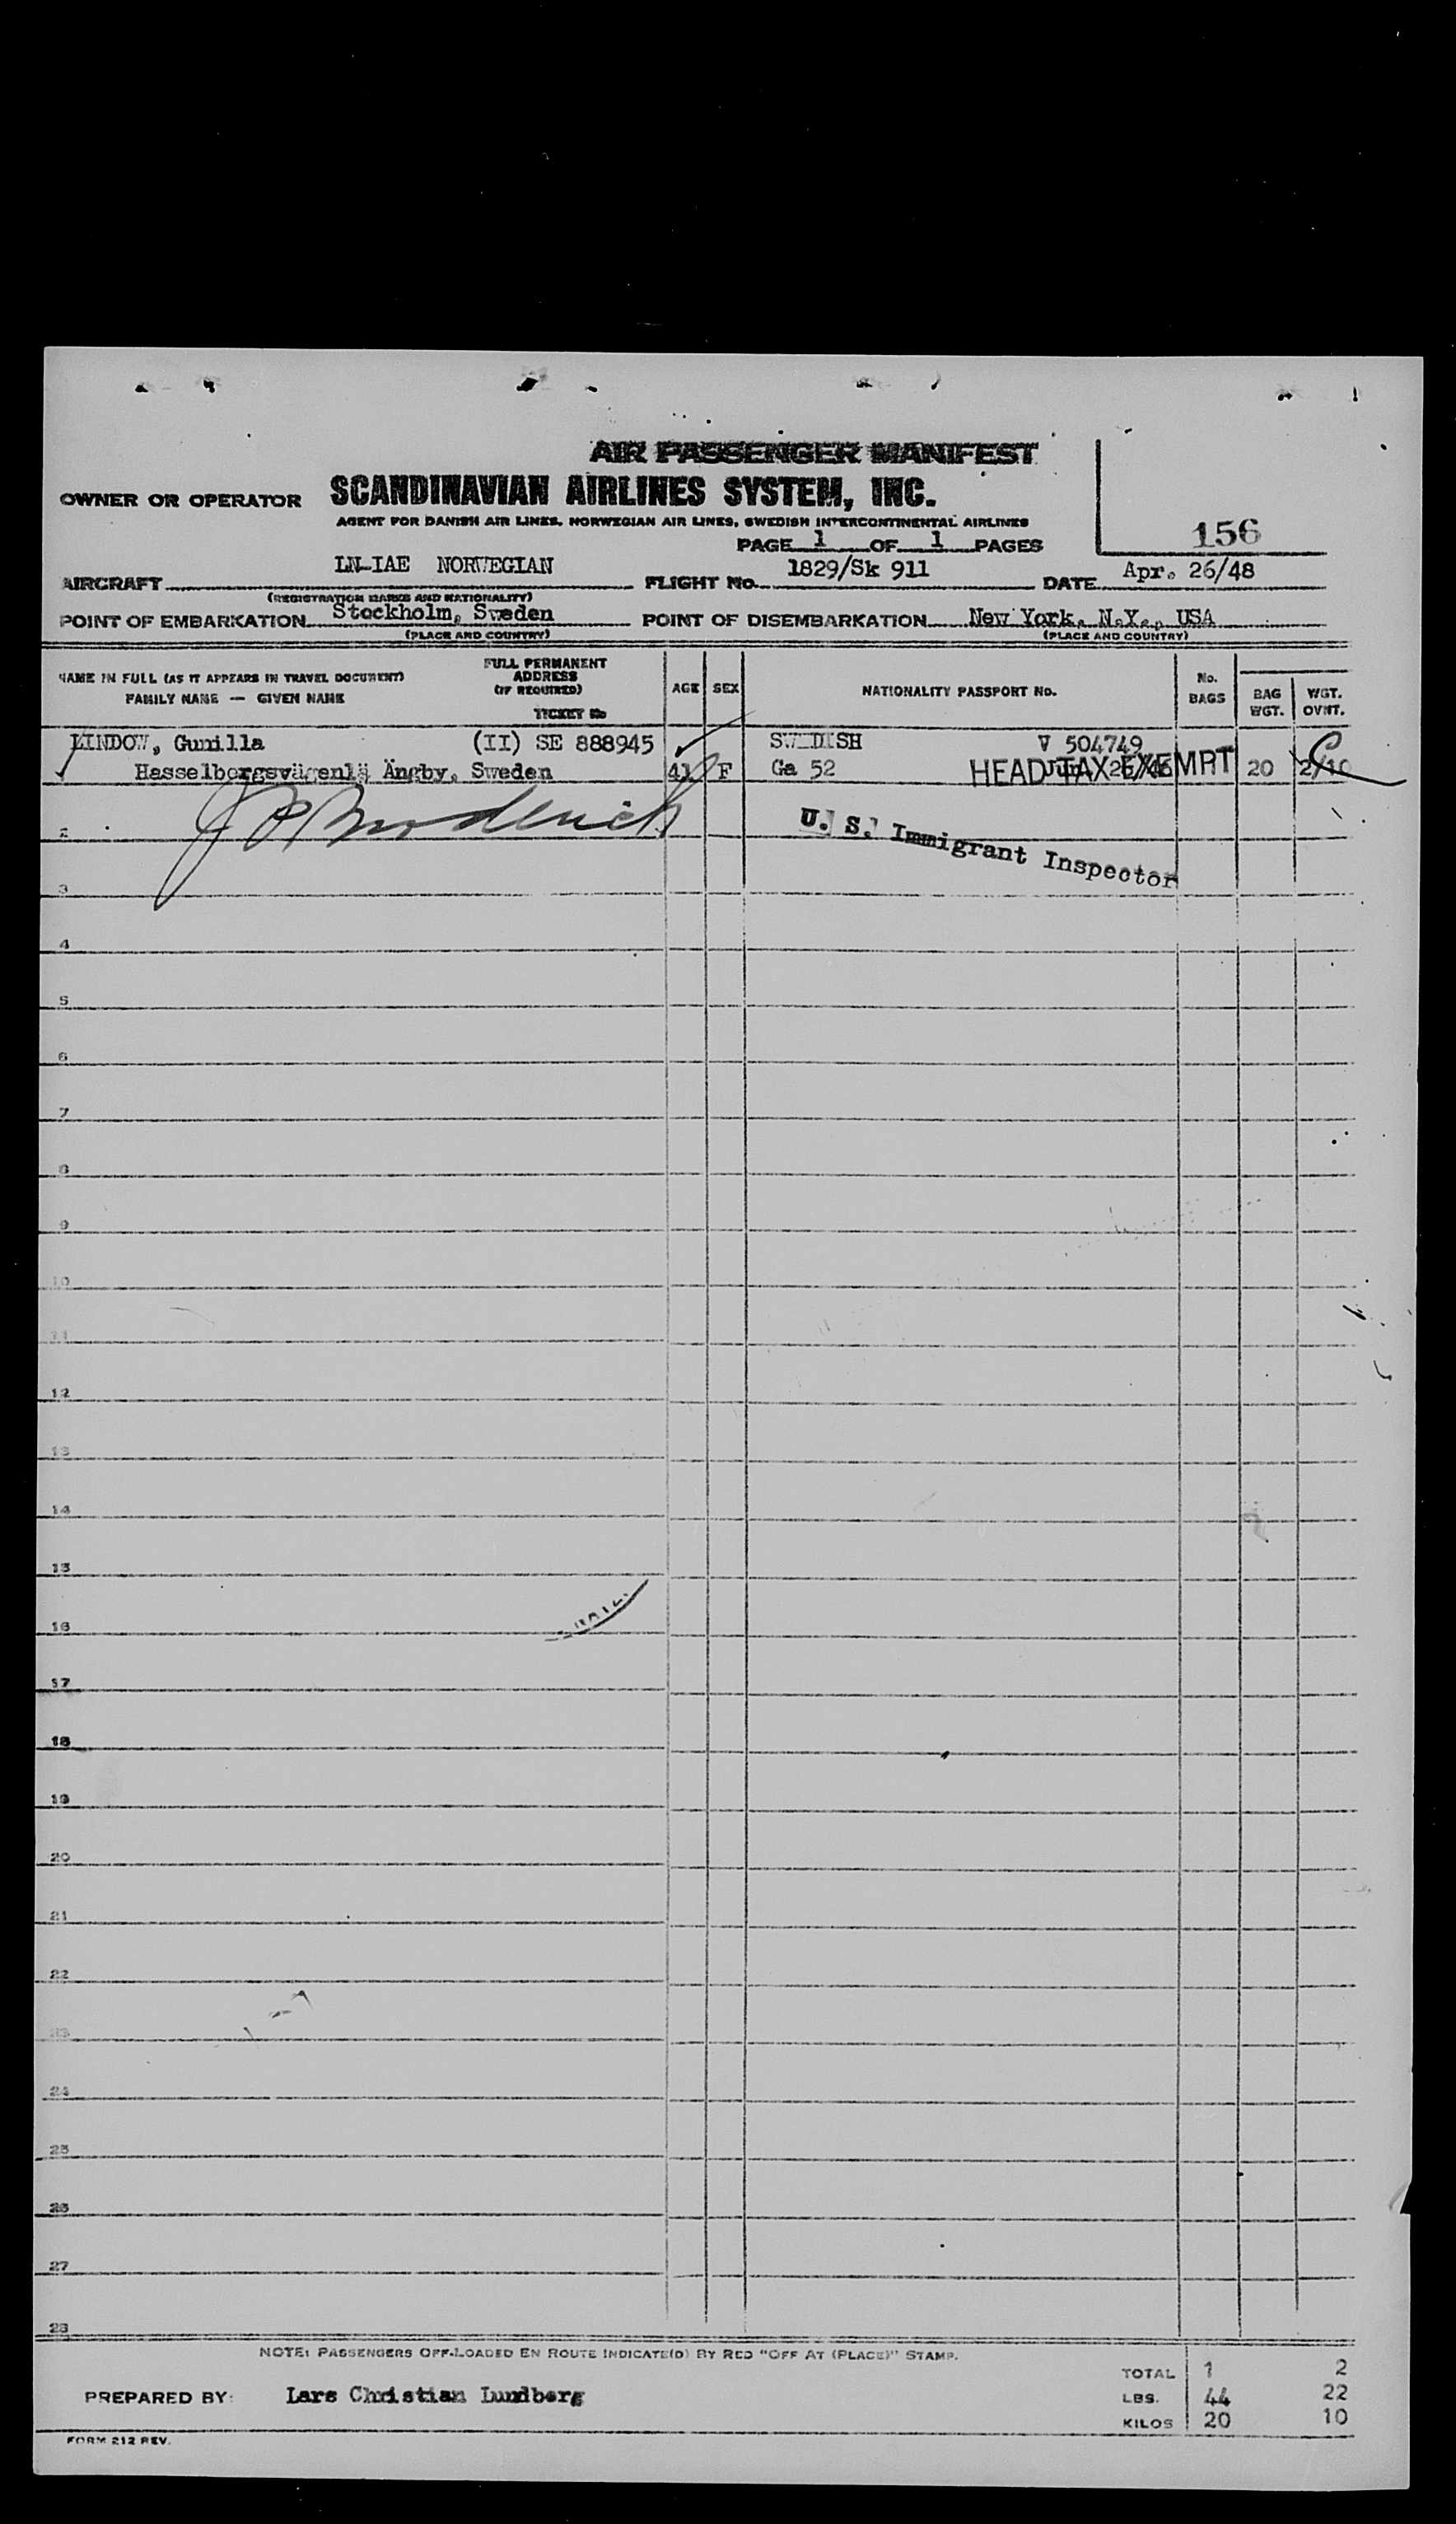 AIR PASSENGER MANIFEST
OWNER OR OPERATOR SCANDINAVIAN AIRLINES SYSTEM, INC.
AGENT FOR DANISH AIR LINES, NORWEGIAN AIR LINES, SWEDISH INTERCONTINENTAL AIRLINES
156
PAGE 1 OF 1 PAGES
AIRCRAFT LN-IAE NORWEGIAN FLIGHT No. 1829/Sk 911 DATE Apr. 26/48
(REGISTRATION MARKS AND NATIONALITY)
POINT OF EMBARKATION Stockholm, Sweden POINT OF DISEMBARKATION New York, N.Y., USA
(PLACE AND COUNTRY) (PLACE AND COUNTRY)
NAME IN FULL (AS IT APPEARS IN TRAVEL DOCUMENT) FULL PERMANENT ADDRESS (IF REQUIRED) AGE SEX NATIONALITY PASSPORT No. No. BAGS BAG WGT. WGT. OVNT.
FAMILY NAME — GIVEN NAME TICKET No
LINDOW, Gunilla (II) SE 888945 SWEDISH V 504749
Hasselborgsvägen Ängby, Sweden 41 F Ga 52 HEAD TAX EXEMPT 20 2/10
2
U. S. Immigrant Inspector
3
4
5
6
7
8
9
10
11
12
13
14
15
16
17
18
19
20
21
22
23
24
25
26
27
28
NOTE: PASSENGERS OFF-LOADED EN ROUTE INDICATE(D) BY RED "OFF AT (PLACE)" STAMP.
TOTAL 1 2
PREPARED BY: Lars Christian Lundberg LBS. 44 22
KILOS 20 10
FORM 212 REV.